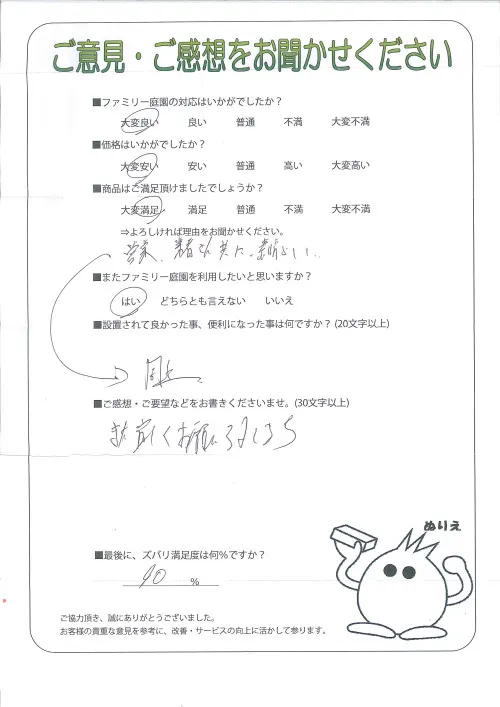 ご意見・ご感想をお聞かせください
■ファミリー庭園の対応はいかがでしたか？
大変良い 良い 普通 不満 大変不満
■価格はいかがでしたか？
大変安い 安い 普通 高い 大変高い
■商品はご満足頂けましたでしょうか？
大変満足 満足 普通 不満 大変不満
⇒よろしければ理由をお聞かせください。
営業、業者さん共に、素晴らしい。
■またファミリー庭園を利用したいと思いますか？
はい どちらとも言えない いいえ
■設置されて良かった事、便利になった事は何ですか？(20文字以上)
同上
■ご感想・ご要望などをお書きくださいませ。(30文字以上)
また宜しくお願いします
ぬりえ
■最後に、ズバリ満足度は何％ですか？
90 %
ご協力頂き、誠にありがとうございました。
お客様の貴重な意見を参考に、改善・サービスの向上に活かして参ります。